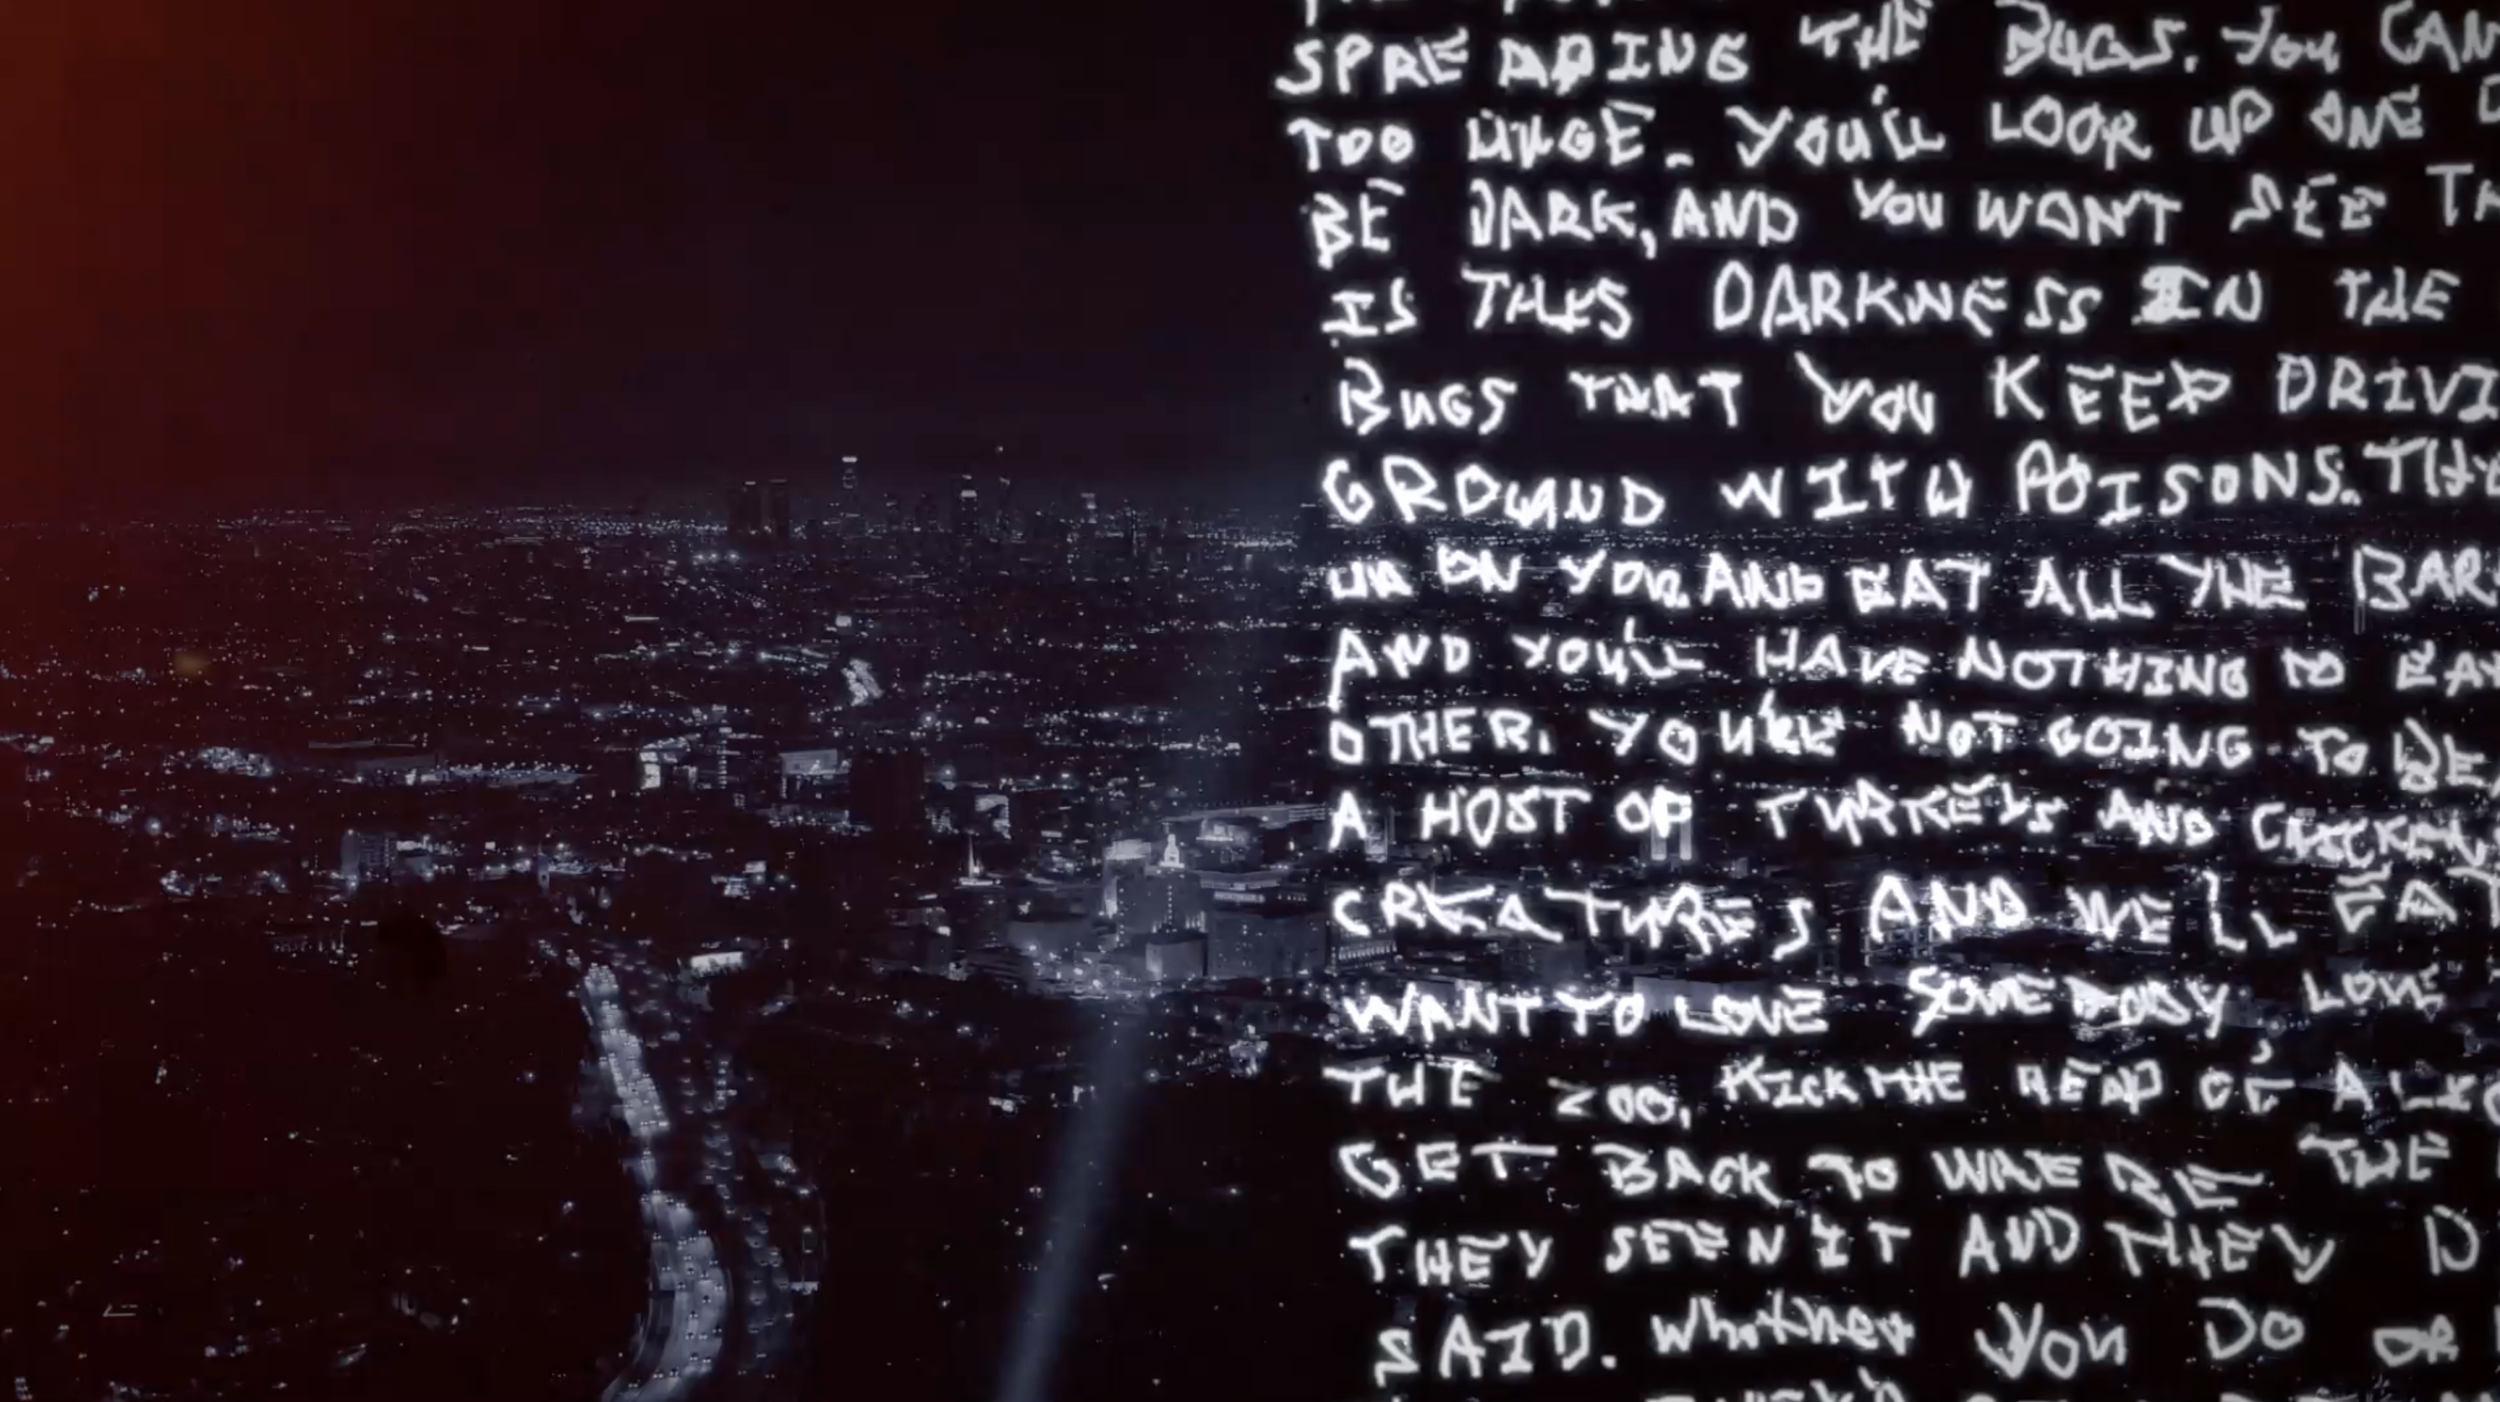 SPREADING THE BUGS. YOU CAN
TOO HUGE. YOU'LL LOOK UP ONE
BE DARK, AND YOU WONT SEE
IS THIS DARKNESS IN THE
BUGS THAT YOU KEEP
GROUND WITH POISONS.
ON YOU AND EAT ALL THE
AND YOU'LL HAVE NOTHING TO
OTHER. YOU'RE NOT GOING TO
A HOST OF TURKEYS AND
CREATURES AND WE'LL EAT
WANT TO LOVE SOMEBODY LOVE
THE ZOO, KICK THE HEAD OF A
GET BACK TO WHERE THE
THEY SEEN IT AND THEY
SAID. Whether YOU DO OR